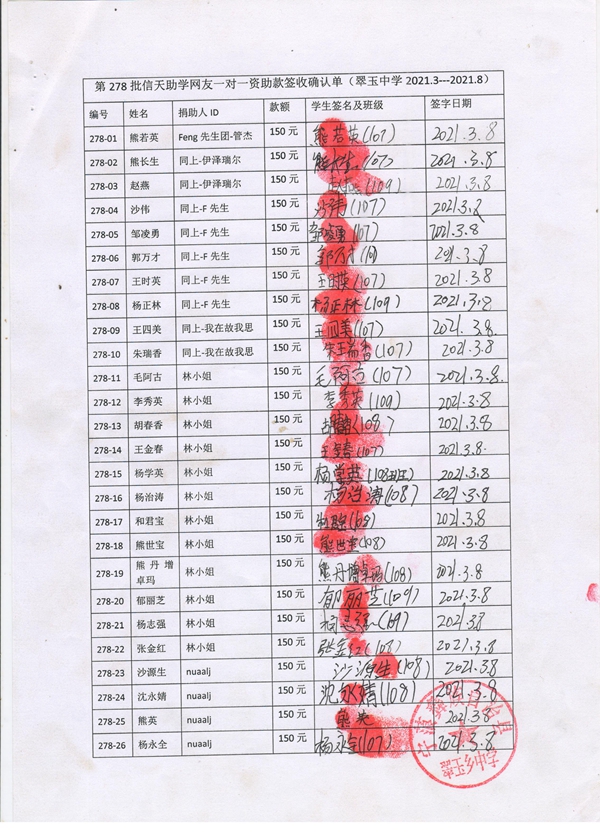 第 278 批信天助学网友一对一资助款签收确认单（翠玉中学 2021.3---2021.8）
编号 姓名 捐助人 ID 款额 学生签名及班级 签字日期
278-01 熊若英 Feng 先生团-管杰 150 元 熊若英(107) 2021.3.8
278-02 熊长生 同上-伊泽瑞尔 150 元 熊长生(107) 2021.3.8
278-03 赵燕 同上-伊泽瑞尔 150 元 赵燕(109) 2021.3.8
278-04 沙伟 同上-F 先生 150 元 沙伟(107) 2021.3.8
278-05 邹凌勇 同上-F 先生 150 元 邹凌勇(107) 2021.3.8
278-06 郭万才 同上-F 先生 150 元 郭万才 2021.3.8
278-07 王时英 同上-F 先生 150 元 王时英(107) 2021.3.8
278-08 杨正林 同上-F 先生 150 元 杨正林(109) 2021.3.8
278-09 王四美 同上-我在故我思 150 元 王四美(107) 2021.3.8
278-10 朱瑞香 同上-我在故我思 150 元 (107) 2021.3.8
278-11 毛阿古 林小姐 150 元 毛阿古(107) 2021.3.8.
278-12 李秀英 林小姐 150 元 李秀英(109) 2021.3.8
278-13 胡春香 林小姐 150 元 (108) 2021.3.8
278-14 王金春 林小姐 150 元 王金春(107) 2021.3.8.
278-15 杨学英 林小姐 150 元 杨学英(108班) 2021.3.8
278-16 杨治涛 林小姐 150 元 杨治涛(108) 2021.3.8
278-17 和君宝 林小姐 150 元 2021.3.8
278-18 熊世宝 林小姐 150 元 熊世宝(108) 2021.3.8
278-19 熊丹增卓玛 林小姐 150 元 熊丹增卓玛(108) 2021.3.8
278-20 郁丽芝 林小姐 150 元 郁丽芝(109) 2021.3.8
278-21 杨志强 林小姐 150 元 杨志强(109) 2021.3.8
278-22 张金红 林小姐 150 元 张金红(108) 2021.3.8
278-23 沙源生 nuaalj 150 元 沙源生(108) 2021.3.8
278-24 沈永婧 nuaalj 150 元 沈永婧(108) 2021.3.8
278-25 熊英 nuaalj 150 元 熊英 2021.3.8
278-26 杨永全 nuaalj 150 元 杨永全(107) 2021.3.8